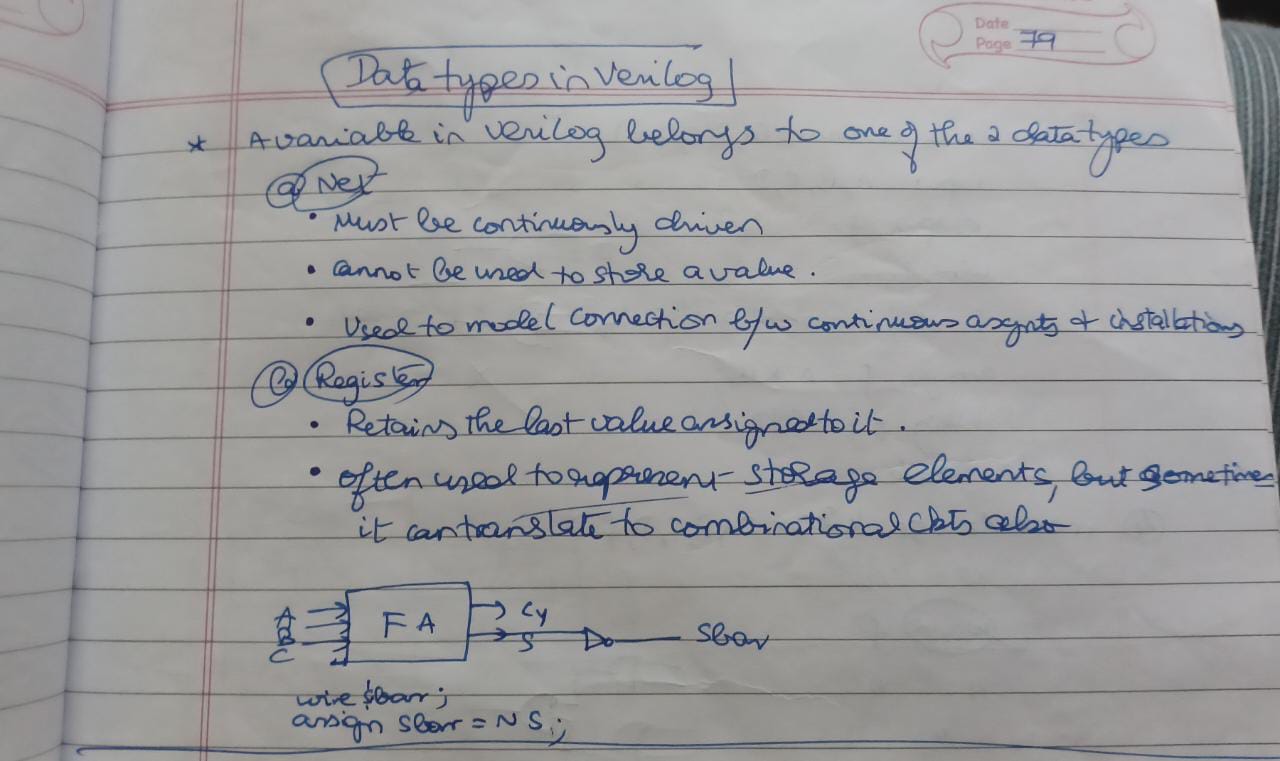 Date
Page 79
Data types in Verilog
* A variable in verilog belongs to one of the 2 data types
@ Net
• Must be continuously driven
• cannot be used to store a value.
• Used to model connection b/w continuous asgnts & installations
@ Register
• Retains the last value assigned to it.
• often used to represent storage elements, but sometimes
it can translate to combinational ckts also
A
B
C
FA
Cy
S
Sbar
wire sbar;
assign sbar = ~S;